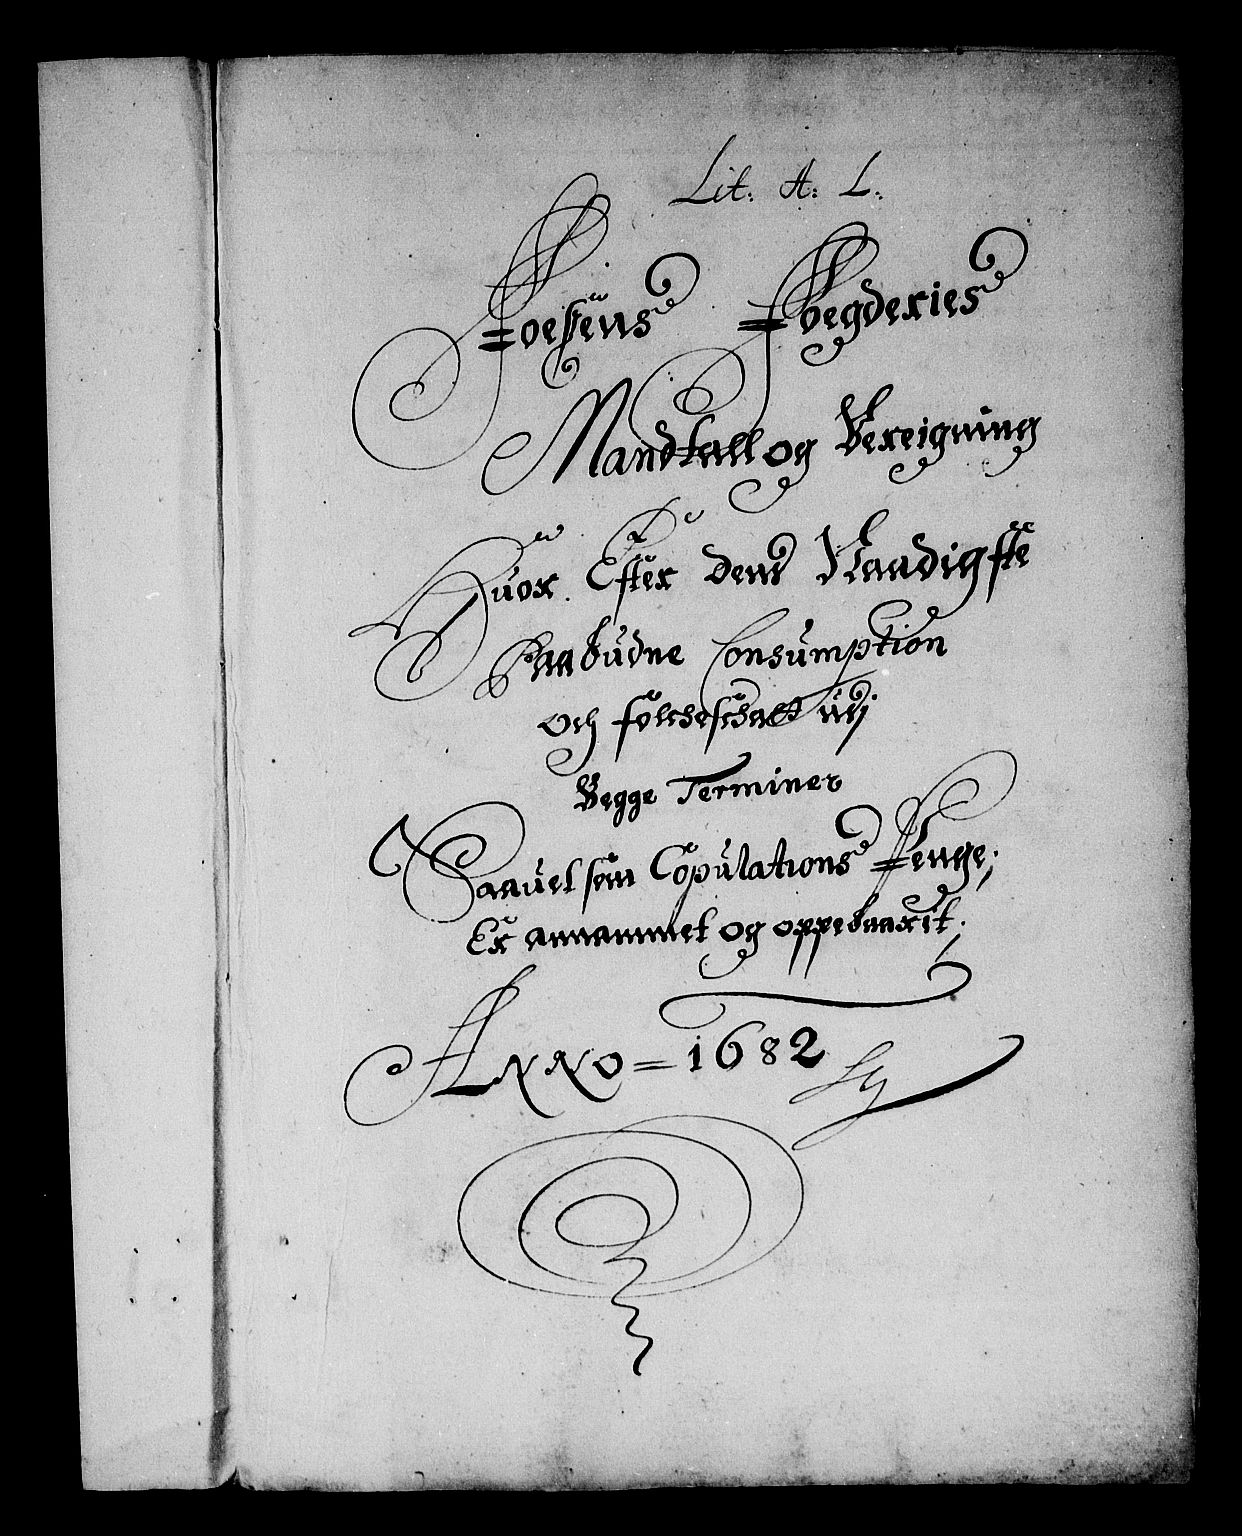 Lit: A: L:
Foesens Foegderies
Mandtall og Bereigning
Huor Efter dend Naadigste
Paabudne Consumption
Och folcheschatt udj
Begge Terminer
Saauelsom Copulations Penge;
Er annammet og oppebaarit;
Anno = 1682